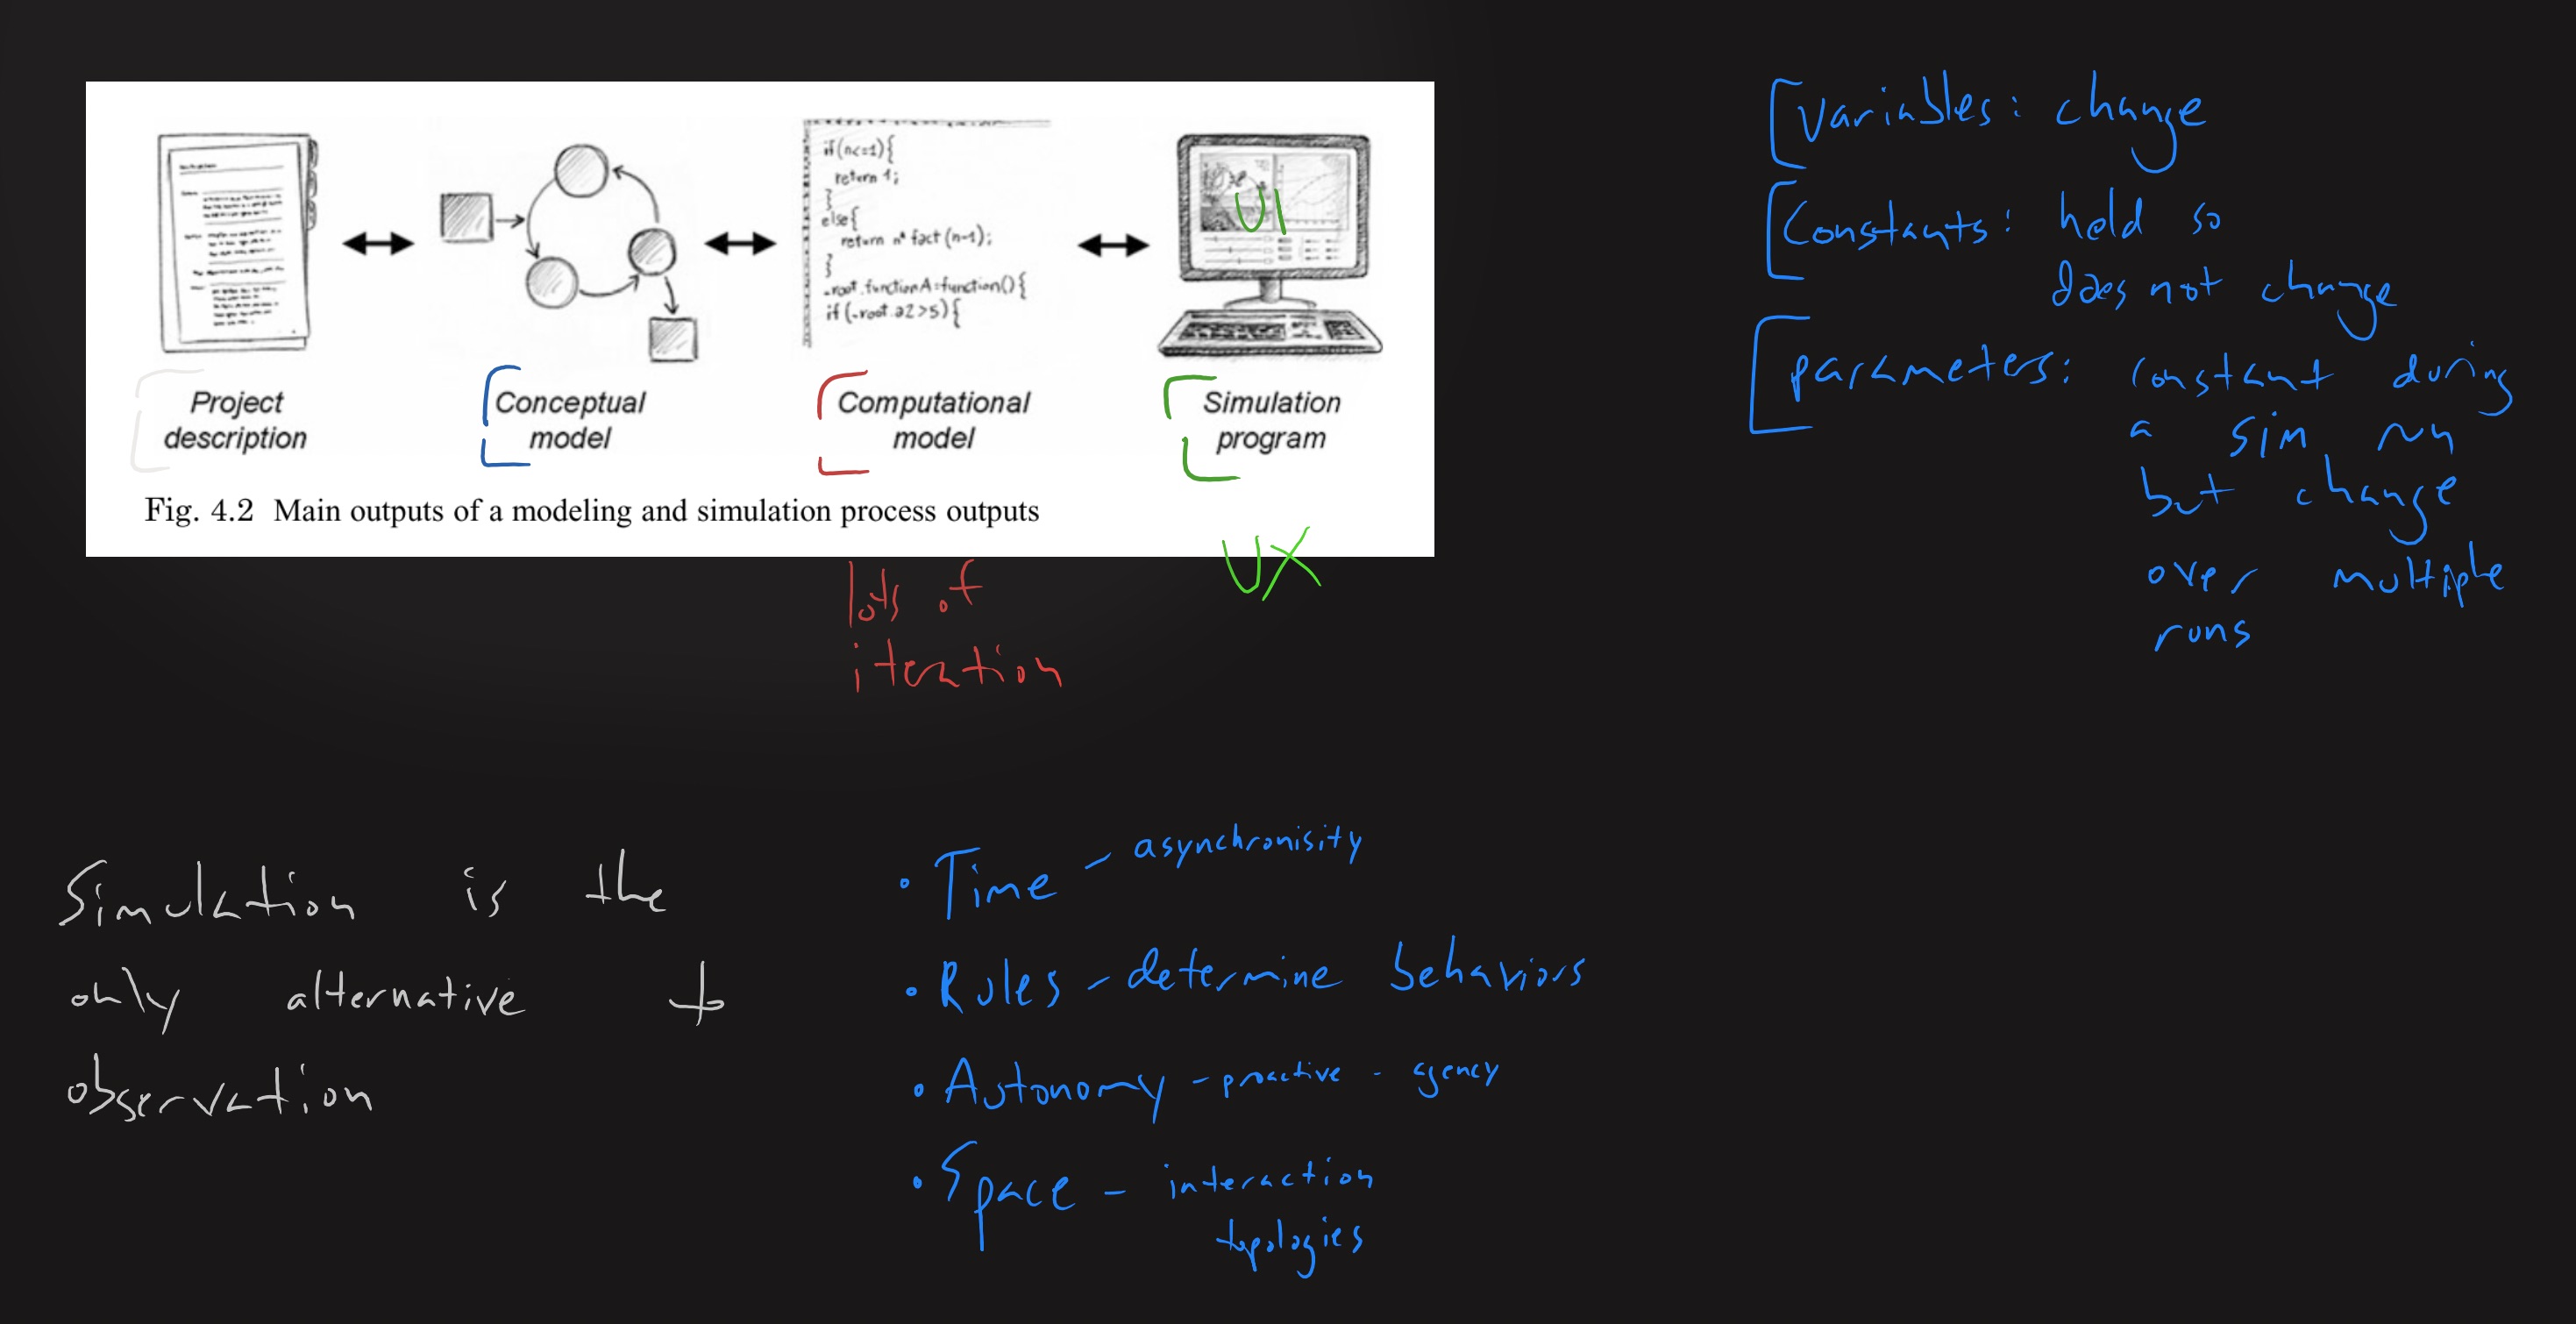 if(n<=1){
return 1;
}
else{
return n* fact(n-1);
}
-root.functionA=function(){
if(-root.a2>5){
UI
Project
description
Conceptual
model
Computational
model
Simulation
program
Fig. 4.2 Main outputs of a modeling and simulation process outputs
lots of
iteration
UX
Variables: change
Constants: hold so
does not change
parameters: constant during
a sim run
but change
over multiple
runs
Simulation is the
only alternative to
observation
• Time - asynchronisity
• Rules - determine behaviors
• Autonomy - proactive - agency
• Space - interaction
topologies